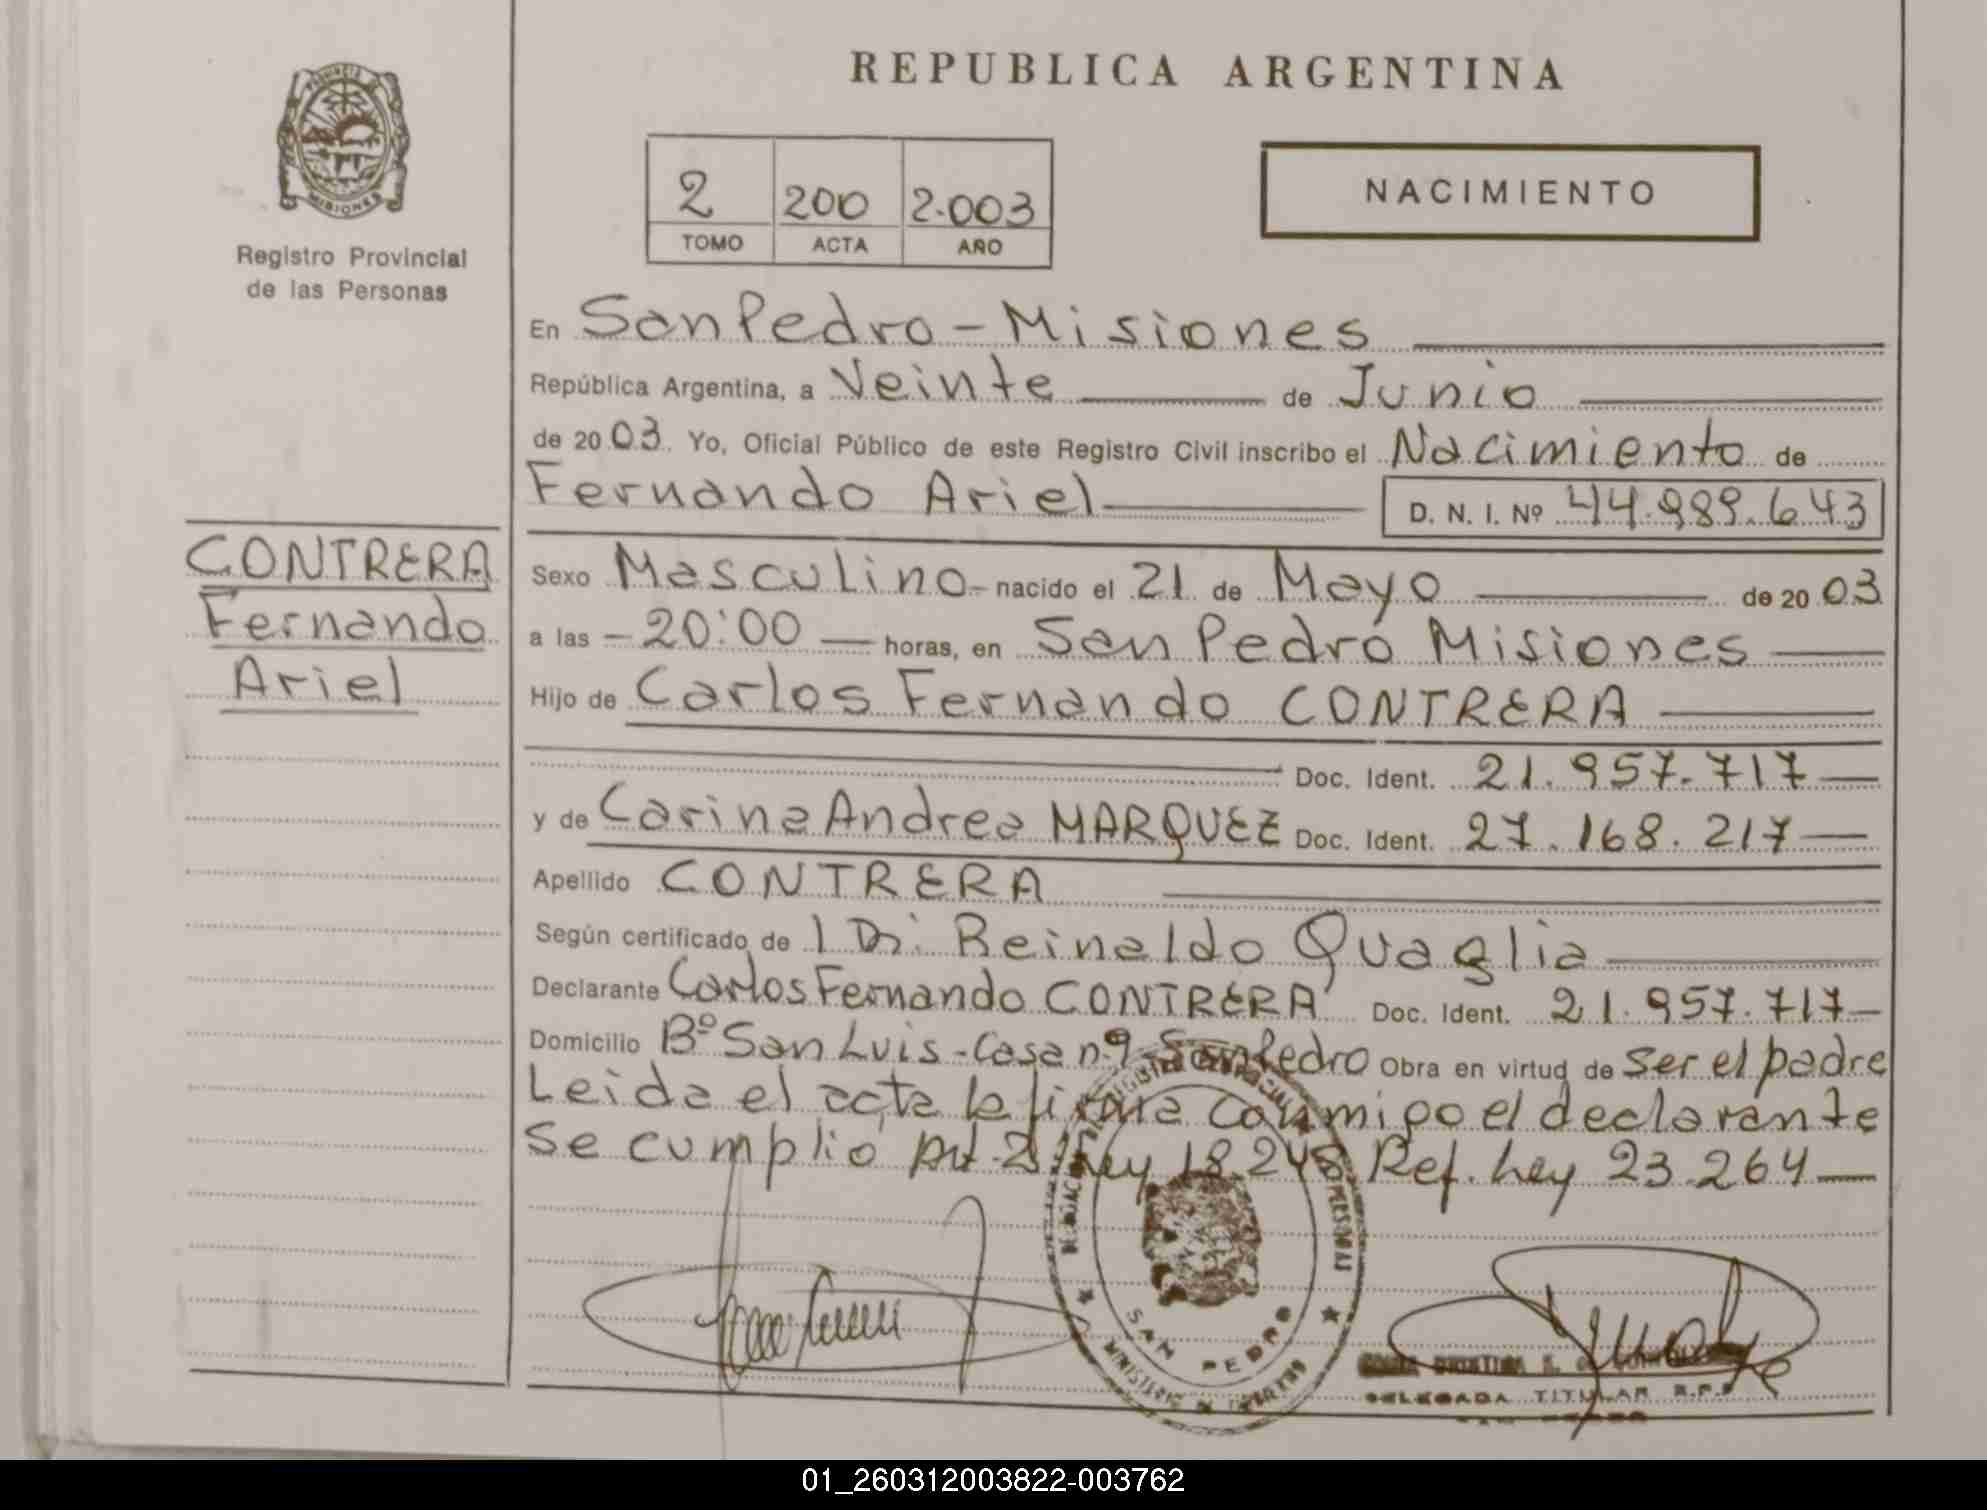 REPUBLICA ARGENTINA
PROVINCIA
MISIONES
Registro Provincial
de las Personas
2 200 2.003
TOMO ACTA AÑO
NACIMIENTO
En San Pedro - Misiones
República Argentina, a Veinte de Junio
de 2003. Yo, Oficial Público de este Registro Civil inscribo el Nacimiento de
Fernando Ariel D. N. I. Nº 44.989.643
CONTRERA
Fernando
Ariel
Sexo Masculino - nacido el 21 de Mayo de 2003
a las - 20:00 - horas, en San Pedro Misiones
Hijo de Carlos Fernando CONTRERA
Doc. Ident. 21.957.717
y de Carina Andrea MARQUEZ Doc. Ident. 27.168.217
Apellido CONTRERA
Según certificado de 1 Dr. Reinaldo Quaglia
Declarante Carlos Fernando CONTRERA Doc. Ident. 21.957.717
Domicilio Bº San Luis - Casa n. 9 - San Pedro Obra en virtud de Ser el padre
Leida el acta la firma conmigo el declarante
Se cumplio Art. 2 Ley 18.248 Ref. Ley 23.264
SAN PEDRO
MINISTERIO DE GOBIERNO
DELEGADA TITULAR R.P.P.
01_260312003822-003762